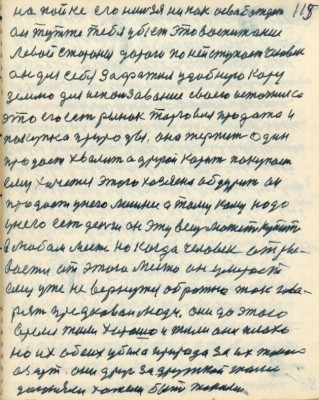 на пойке его нильзя никак освабождат 118
он тутже тебя убьет это воспитание
левой стороны дороги по ней ступает человек
он для себя захватил удобную кору
землю для использавание своего источника
это его сет рынок торговля продажа и
покупка природы, она терпит один
продает хвалит а другой корит покупает
ему хочется этого хозяина обдурит он
продает у него лишнее а тому кому надо
у него сет деньги он эту вещ может купить
в любом месте но когда человек отры-
вается от этого место он умирает
ему уже не вернутся обратно так гово-
рят предковаи люди, они до этого
время жили хорошо и жили они плохо
но их обеих убила природа за их такое
они друг за дружкой
хотели быт такими